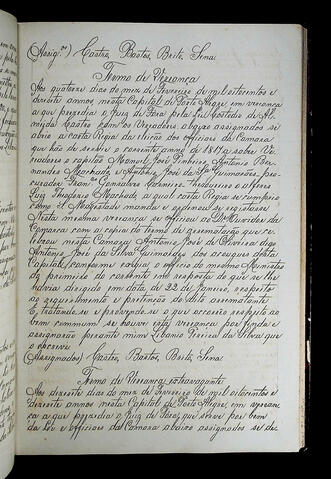 (Assig.os) Castro, Bastos, Brito, Sena
Termo de Vereança
Aos quatorze dias do mez de Fevereiro de mil oitocentos e
dezesete annos, nesta Capital de Porto Alegre, em vereança
a que prezedio o Juiz de Fora pela Lei Custodio de Al-
meida Castro com os Vereadores abaixo assignados se
abrio a Carta Regia da eleição dos Officiaes da Camara
que hão de servir o corrente anno de 1817 a saber Ve-
readores o capitão Manoel José Pinheiro, Antonio Ber-
nardes Machado, e Antonio José da Sª Guimarães, pro-
curador Franco Gonsalves Carneiro, Thesoureiro o alferes
Luiz Theodozio Machado, a qual carta Regia se cumprio
como S. Magestade manda e a general de registou-se
Nesta mesma vereança se officiou ao Dr Ouvidor da
Comarca com a copia do termo de arrematação que ce-
lebrou nesta Camara Antonio José de Oliveira digo
Antonio José da Silva Guimarães dos açougues desta
Capital, conforme exigio o officio do mesmo Ministro
da premeiro do corrente em resposta do que se lhe
havia dirigido em data de 22 de Janeiro, respeito
ao requerimento e pertenção do dito arrematante
E, tratando-se e provendo-se o que occorreo respeito ao
bem commum se houve esta vereança por finda e
assignarão perante mim Libanio Pereira da Silva que
o escrevi
(Assignados) Castro, Bastos, Brito, Sena
Termo de Vereança extravagante
Aos dezesete dias do mez de Fevereiro de mil oitocentos e
dezesete annos nesta Capital de Porto Alegre, em verean-
ça a que prezedio o Juiz de Fora, que serve por bem
da Lei e officiaes da Camara abaixo assignados se de